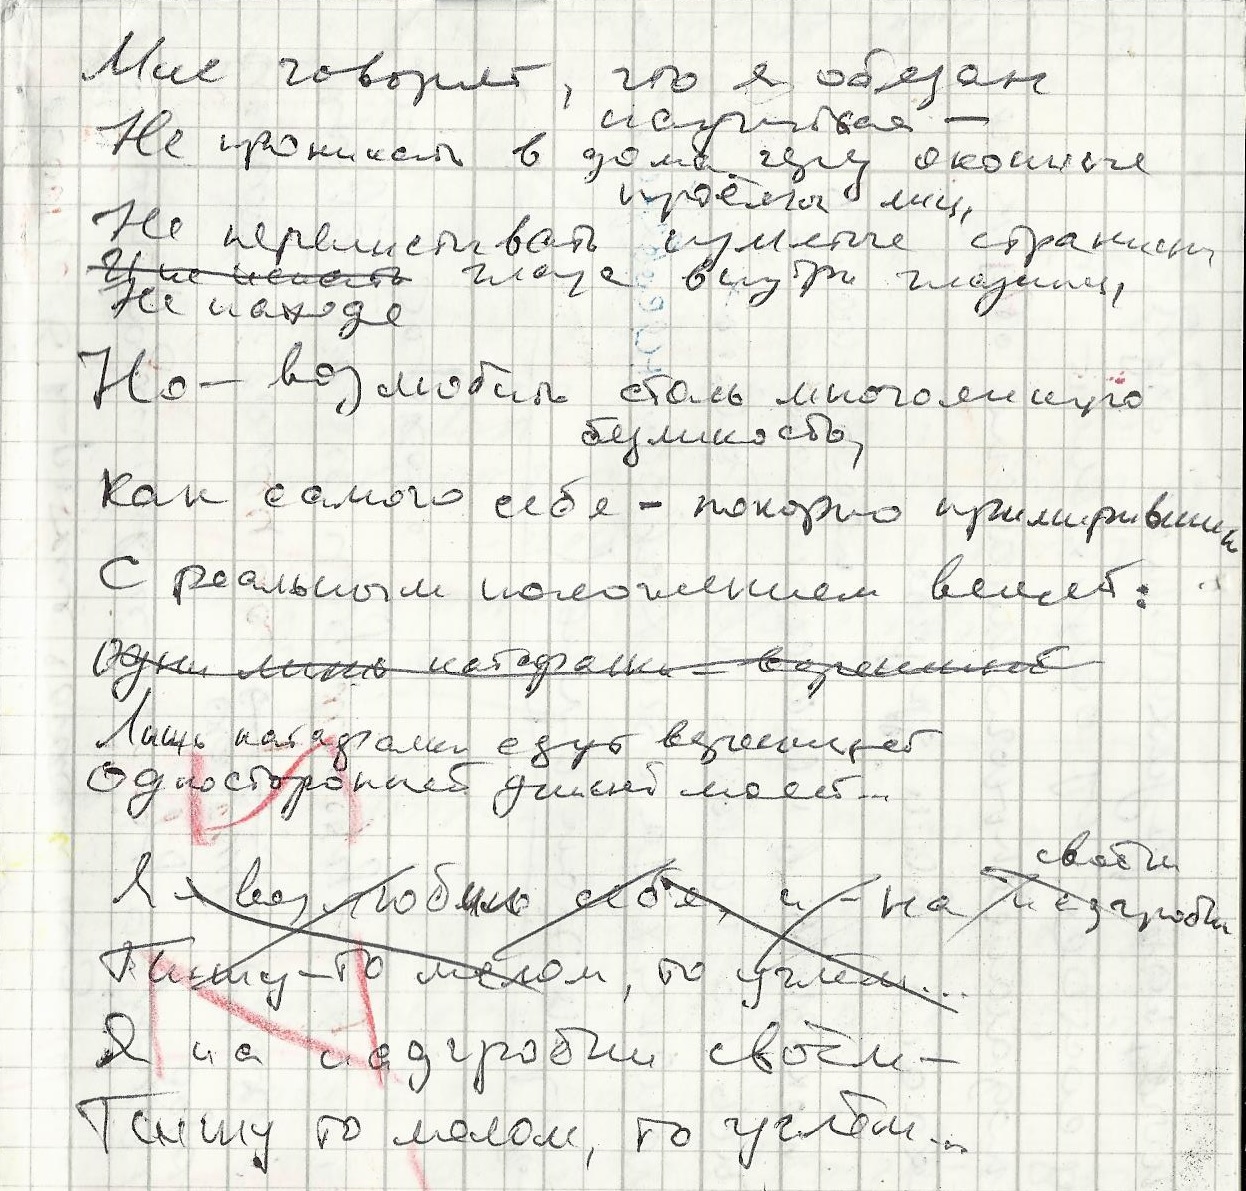 Мне говорят, что я обязан
научиться –
Не проникать в дома чрез оконные
проёмы лиц,
Не перелистывать измятые страницы
Не находя глаза внутри глазниц,
Но – возлюбить столь многоликую
безликость,
Как самого себя – покорно примирившись
С реальным положением вещей:
Одни лишь катафалки – вереницей
Лишь катафалки едут вереницей
Односторонней улицей моей...
своём
Я возлюбил себя, и – на надгробии
Пишу – то мелом, то углём...
Я на надгробии своём –
Пишу то мелом, то углём...